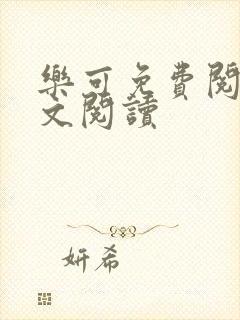 樂可免費閱
文閱讀
妍希